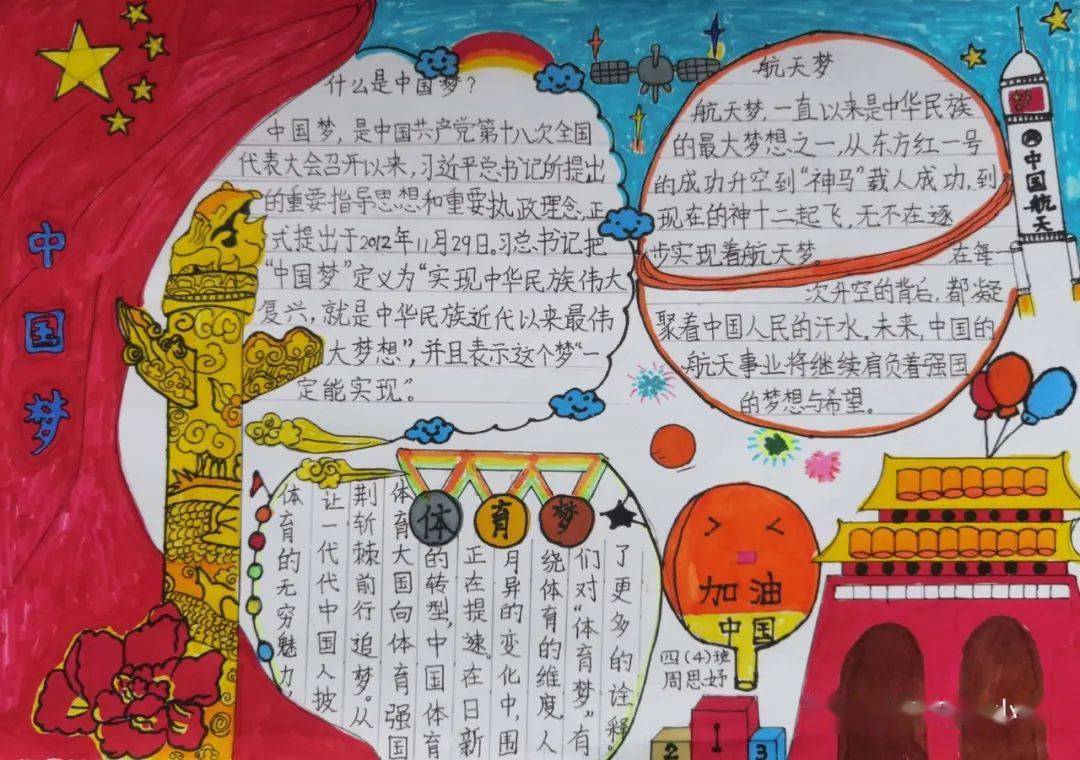 中国梦
什么是中国梦？
中国梦，是中国共产党第十八次全国
代表大会召开以来，习近平总书记所提出
的重要指导思想和重要执政理念，正
式提出于2012年11月29日。习总书记把
“中国梦”定义为“实现中华民族伟大
复兴，就是中华民族近代以来最伟
大梦想”，并且表示这个梦“一
定能实现”。
航天梦
航天梦，一直以来是中华民族
的最大梦想之一，从东方红一号
的成功升空到“神马”载人成功，到
现在的神十二起飞，无不在逐
步实现着航天梦。 在每一
次升空的背后，都凝
聚着中国人民的汗水。未来，中国的
航天事业将继续肩负着强国
的梦想与希望。
中国航天
体育梦
体育的无穷魅力，
让一代代中国人披
荆斩棘前行追梦。从
体育大国向体育强国
的转型，中国体育
正在提速。在日新
月异的变化中，围
绕体育的维度，人
们对“体育梦”有
了更多的诠释。
加油
中国
四(4)班
周思妤
2 1 3